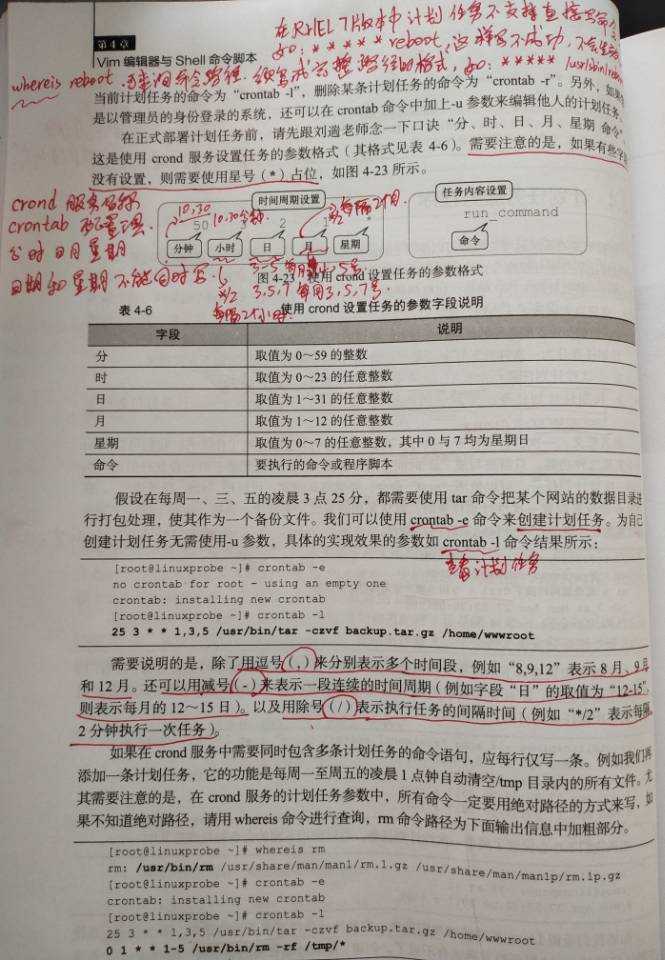 在RHEL 7版本中计划任务不支持直接写命令
如: * * * * * reboot, 这样写不成功,
第4章
Vim 编辑器与 Shell 命令脚本
whereis reboot 可查询命令路径. 须写成完整路径的格式, 如: * * * * * /usr/bin/reboot
当前计划任务的命令为“crontab -l”，删除某条计划任务的命令为“crontab -r”。另外，如果
是以管理员的身份登录的系统，还可以在 crontab 命令中加上-u 参数来编辑他人的计划任务
在正式部署计划任务前，请先跟刘遄老师念一下口诀“分、时、日、月、星期 命令”
这是使用 crond 服务设置任务的参数格式（其格式见表 4-6）。需要注意的是，如果有些字
没有设置，则需要使用星号（*）占位，如图 4-23 所示。
crond 服务名称
crontab 配置工具
分 时 日 月 星期
日期和星期不能同时写
时间周期设置
任务内容设置
10,30
10,30分钟
每隔2个月
50 3 2 1 *
run_command
分钟 小时 日 月 星期
命令
3-5 每月3,4,5号
图 4-23 使用 crond 设置任务的参数格式
*/2
3,5,7 每月3,5,7号
每隔2个小时
表 4-6 使用 crond 设置任务的参数字段说明
字段 说明
分 取值为 0～59 的整数
时 取值为 0～23 的任意整数
日 取值为 1～31 的任意整数
月 取值为 1～12 的任意整数
星期 取值为 0～7 的任意整数，其中 0 与 7 均为星期日
命令 要执行的命令或程序脚本
假设在每周一、三、五的凌晨 3 点 25 分，都需要使用 tar 命令把某个网站的数据目录进
行打包处理，使其作为一个备份文件。我们可以使用 crontab -e 命令来创建计划任务。为自己
创建计划任务无需使用-u 参数，具体的实现效果的参数如 crontab -l 命令结果所示：
查看计划任务
[root@linuxprobe ~]# crontab -e
no crontab for root - using an empty one
crontab: installing new crontab
[root@linuxprobe ~]# crontab -l
25 3 * * 1,3,5 /usr/bin/tar -czvf backup.tar.gz /home/wwwroot
需要说明的是，除了用逗号（,）来分别表示多个时间段，例如“8,9,12”表示 8 月、9 月
和 12 月。还可以用减号（-）来表示一段连续的时间周期（例如字段“日”的取值为“12-15”，
则表示每月的 12～15 日）。以及用除号（/）表示执行任务的间隔时间（例如“*/2”表示每隔
2 分钟执行一次任务）。
如果在 crond 服务中需要同时包含多条计划任务的命令语句，应每行仅写一条。例如我们再
添加一条计划任务，它的功能是每周一至周五的凌晨 1 点钟自动清空/tmp 目录内的所有文件。尤
其需要注意的是，在 crond 服务的计划任务参数中，所有命令一定要用绝对路径的方式来写，如
果不知道绝对路径，请用 whereis 命令进行查询，rm 命令路径为下面输出信息中加粗部分。
[root@linuxprobe ~]# whereis rm
rm: /usr/bin/rm /usr/share/man/man1/rm.1.gz /usr/share/man/man1p/rm.1p.gz
[root@linuxprobe ~]# crontab -e
crontab: installing new crontab
[root@linuxprobe ~]# crontab -l
25 3 * * 1,3,5 /usr/bin/tar -czvf backup.tar.gz /home/wwwroot
0 1 * * 1-5 /usr/bin/rm -rf /tmp/*